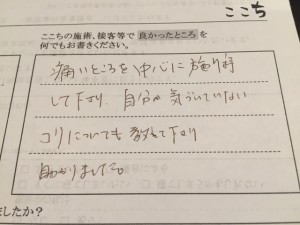 ここち
ここちの施術、接客等で良かったところを
何でもお書きください。
痛いところを中心に施術
して下さり、自分が気づいていない
コリについても教えて下さり
助かりました。
ましたか?